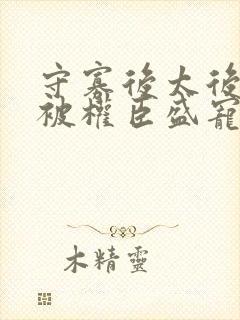 守寡後太後
被權臣盛寵
木精靈